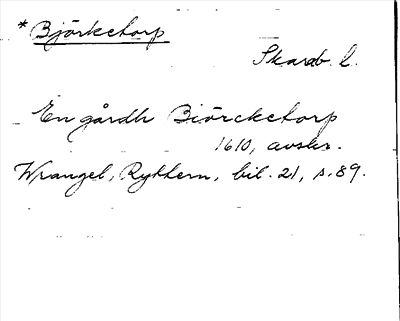 * Björketorp
Skarab. l.
En gårdh Biörcketorp
1610, avskr.
Wrangel, Ryttern, bil. 21, s. 89.